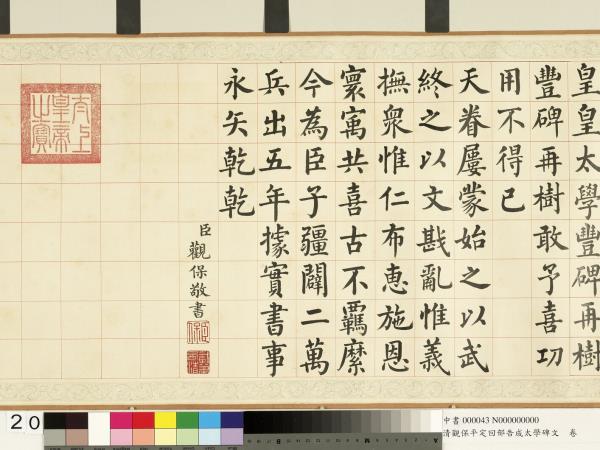 皇皇太學豐碑再樹
豐碑再樹敢予喜功
用不得已
天眷屢蒙始之以武
終之以文戡亂惟義
撫衆惟仁布惠施恩
寰寓共喜古不羈縻
今為臣子疆闢二萬
兵出五年據實書事
永矢乾乾
臣觀保敬書
太上皇帝之寶
20
中書 000043 N000000000
清觀保平定回部告成太學碑文 卷